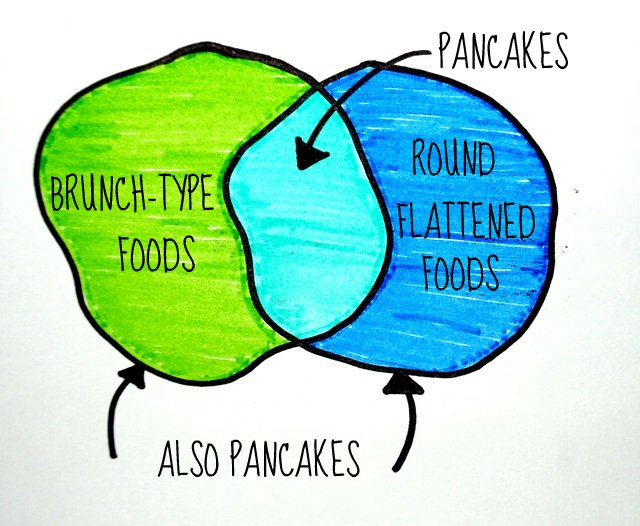 PANCAKES
BRUNCH-TYPE
FOODS
ROUND
FLATTENED
FOODS
ALSO PANCAKES